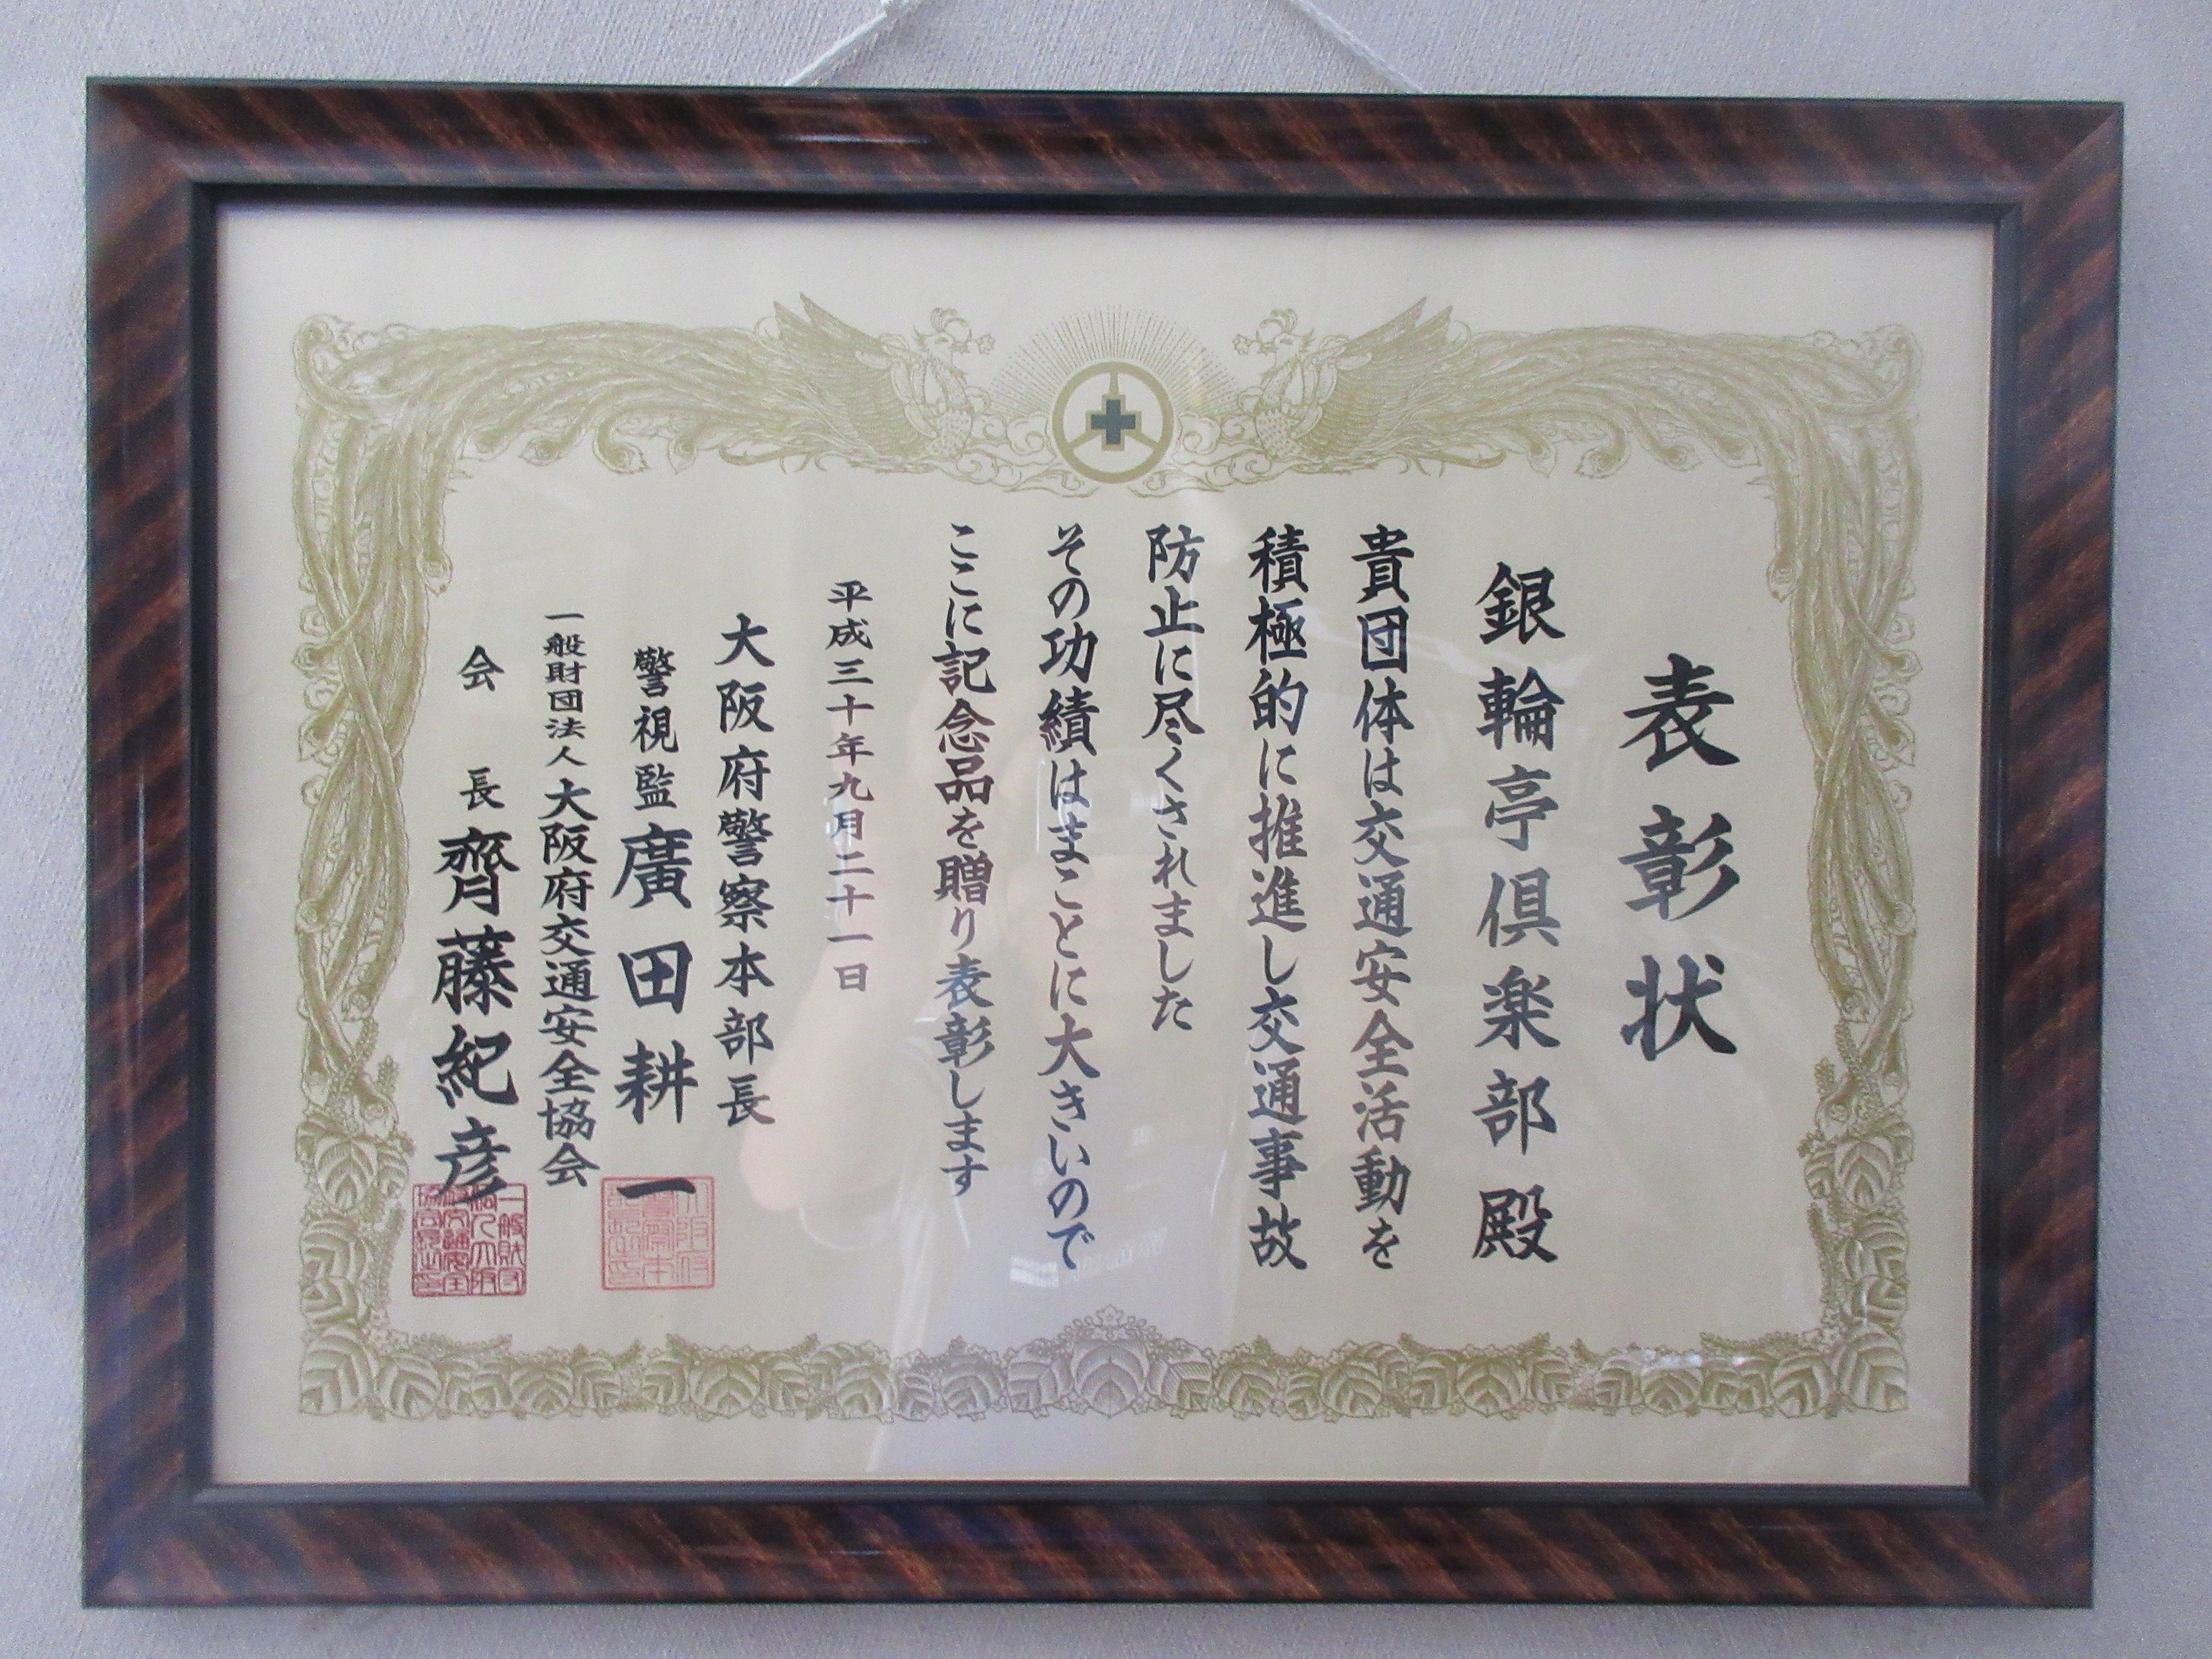 表彰状
銀輪亭倶楽部殿
貴団体は交通安全活動を
積極的に推進し交通事故
防止に尽くされました
その功績はまことに大きいので
ここに記念品を贈り表彰します
平成三十年九月二十一日
大阪府警察本部長
警視監 廣田耕一
一般財団法人大阪府交通安全協会
会長 齊藤紀彦